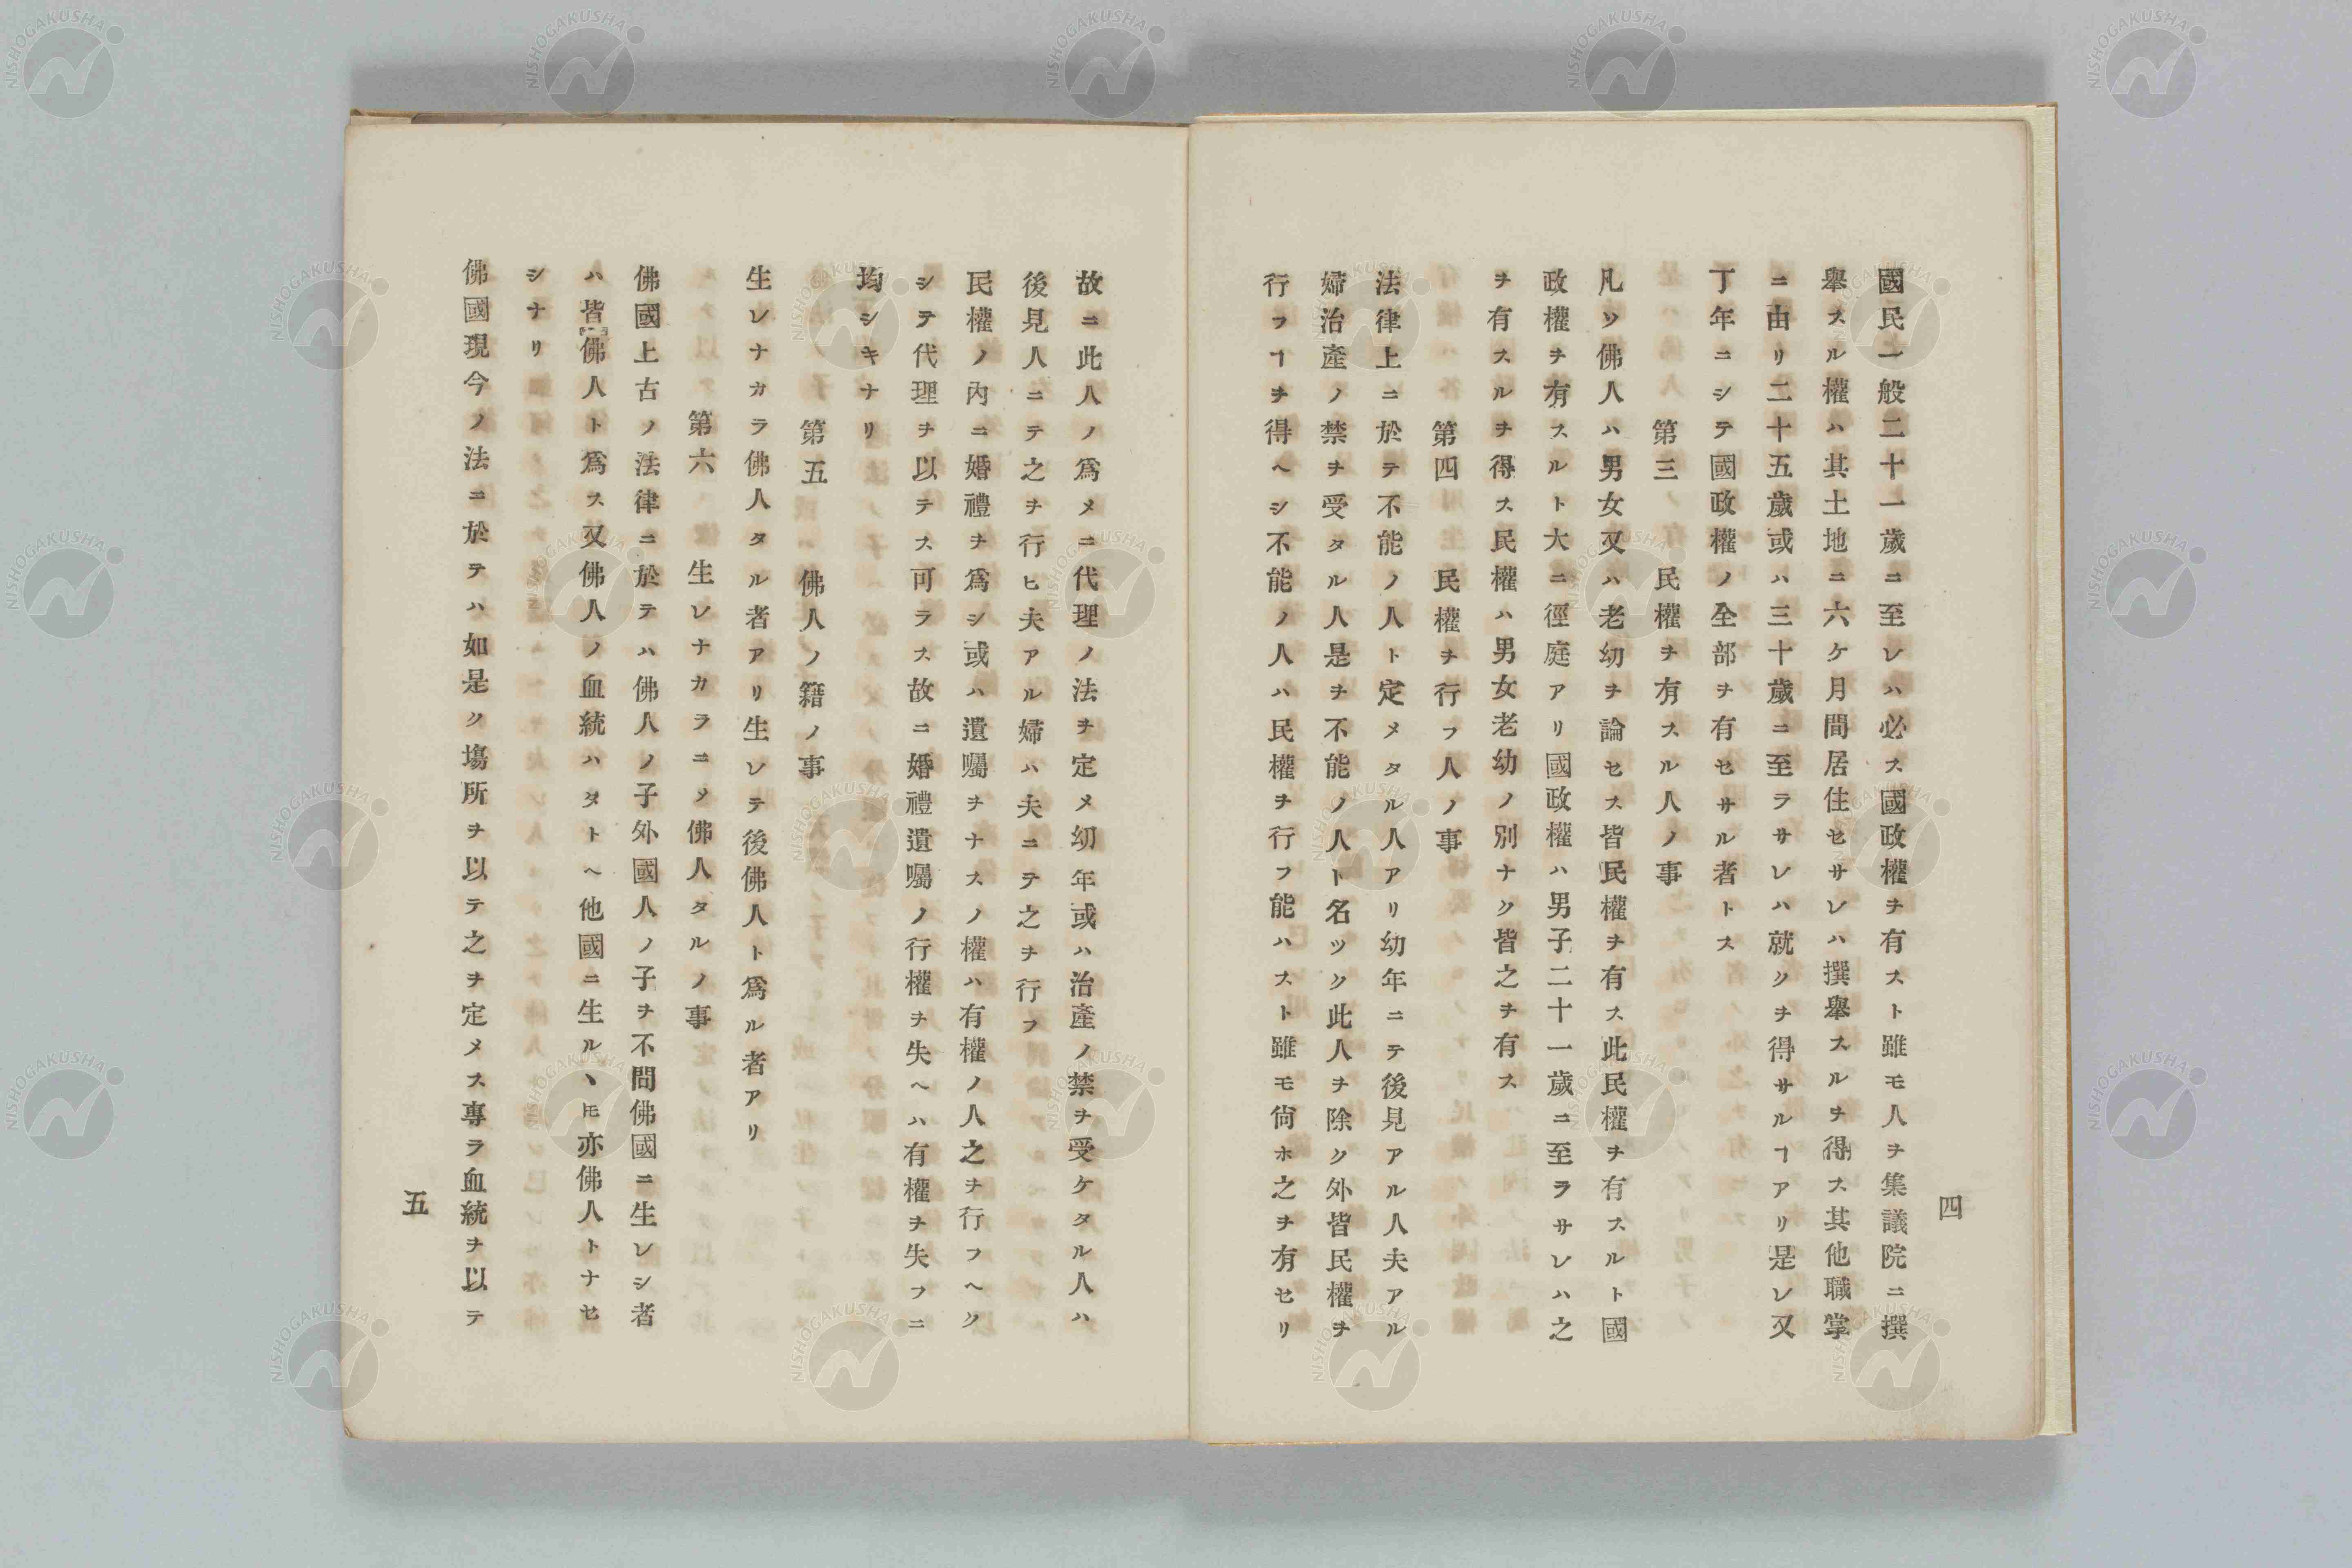 國民一般二十一歲ニ至レハ必ス國政權ヲ有スト雖モ人ヲ集議院ニ撰
擧スル權ハ其土地ニ六ケ月間居住セサレハ撰擧スルヲ得ス其他職掌
ニ由リ二十五歲或ハ三十歲ニ至ラサレハ就クヲ得サルヿアリ是レ又
丁年ニシテ國政權ノ全部ヲ有セサル者トス
第三　民權ヲ有スル人ノ事
凡ソ佛人ハ男女又ハ老幼ヲ論セス皆民權ヲ有ス此民權ヲ有スルト國
政權ヲ有スルト大ニ徑庭アリ國政權ハ男子二十一歲ニ至ラサレハ之
ヲ有スルヲ得ス民權ハ男女老幼ノ別ナク皆之ヲ有ス
第四　民權ヲ行フ人ノ事
法律上ニ於テ不能ノ人ト定メタル人アリ幼年ニテ後見アル人夫アル
婦治產ノ禁ヲ受タル人是ヲ不能ノ人ト名ツク此人ヲ除ク外皆民權ヲ
行フヿヲ得ヘシ不能ノ人ハ民權ヲ行フ能ハスト雖モ尙ホ之ヲ有セリ
四
故ニ此人ノ爲メニ代理ノ法ヲ定メ幼年或ハ治產ノ禁ヲ受ケタル人ハ
後見人ニテ之ヲ行ヒ夫アル婦ハ夫ニテ之ヲ行フ
民權ノ內ニ婚禮ヲ爲シ或ハ遺囑ヲナスノ權ハ有權ノ人之ヲ行フヘク
シテ代理ヲ以テス可ラス故ニ婚禮遺囑ノ行權ヲ失ヘハ有權ヲ失フニ
均シキナリ
第五　佛人ノ籍ノ事
生レナカラ佛人タル者アリ生レテ後佛人ト爲ル者アリ
第六　生レナカラニメ佛人タルノ事
佛國上古ノ法律ニ於テハ佛人ノ子外國人ノ子ヲ不問佛國ニ生レシ者
ハ皆佛人ト爲ス又佛人ノ血統ハタトヘ他國ニ生ルヽ𪜈亦佛人トナセ
シナリ
佛國現今ノ法ニ於テハ如是ク塲所ヲ以テ之ヲ定メス專ラ血統ヲ以テ
五
NISHOGAKUSHA